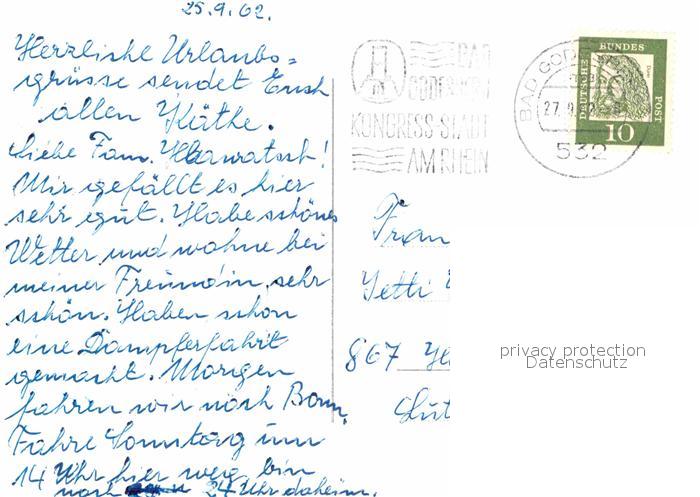 25.9.62.
Herzliche Urlaubs=
grüsse sendet Euch
allen Käthe.
Liebe Fam. !
Mir gefällt es hier
sehr gut. Habe schönes
Wetter und wohne bei
meiner Freundin sehr
schön. Haben schon
eine Dampferfahrt
gemacht. Morgen
fahren wir nach Bonn.
Fahre Sonntag um
14 Uhr hier weg bin
nach 24 Uhr daheim.
BAD
GODESBERG
KONGRESS-STADT
AM RHEIN
BAD GODESBERG
27.9.
532
DEUTSCHE BUNDES POST
10
Frau
Jetti
867
privacy protection
Datenschutz